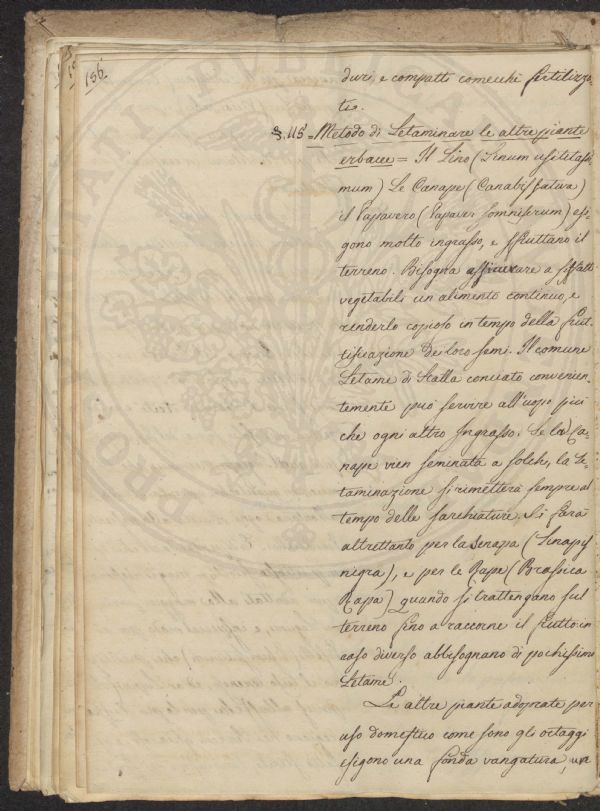 156.
duri, e compatti comecchè fertilizza-
ti.
§. 115 = Metodo di Letaminare le altre piante
erbacee = Il Lino (Linum usitatissi-
mum) Le Canape (Canabis sativa)
il Papavero (Papaver somniferum) esi-
gono molto ingrasso, e sfruttano il
terreno. Bisogna assicurare a siffatti
vegetabili un alimento continuo, e
renderlo copioso in tempo della frut-
tificazione de loro semi. Il comune
Letame di Stalla conciato convenien-
temente può servire all'uopo più
che ogni altro Ingrasso. Se la Ca-
nape vien seminata a solchi, la Le-
taminazione si rimetterà sempre al
tempo delle sarchiature. Si farà
altrettanto per la Senapa (Sinapis
nigra), e per le Rape (Brassica
Rapa) quando si trattengano sul
terreno fino a raccorne il frutto: in
caso diverso abbisognano di pochissimo
Letame.
Le altre piante adoprate per
uso domestico come sono gli ortaggi
esigono una fonda vangatura, una